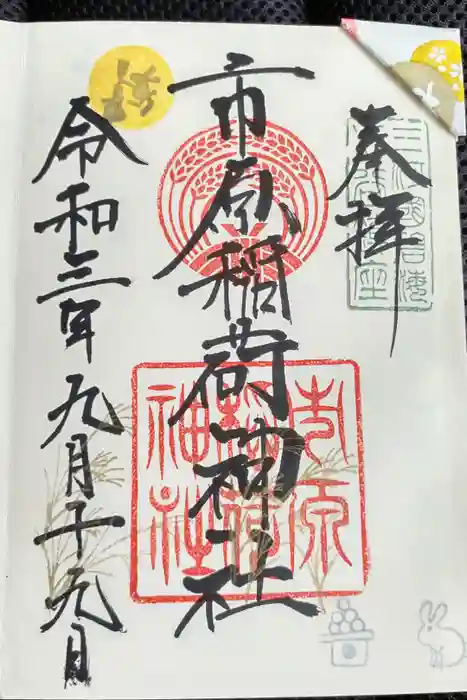 奉拝
三河国碧海
市原稲荷神社
市原稲荷神社
令和三年九月十九日